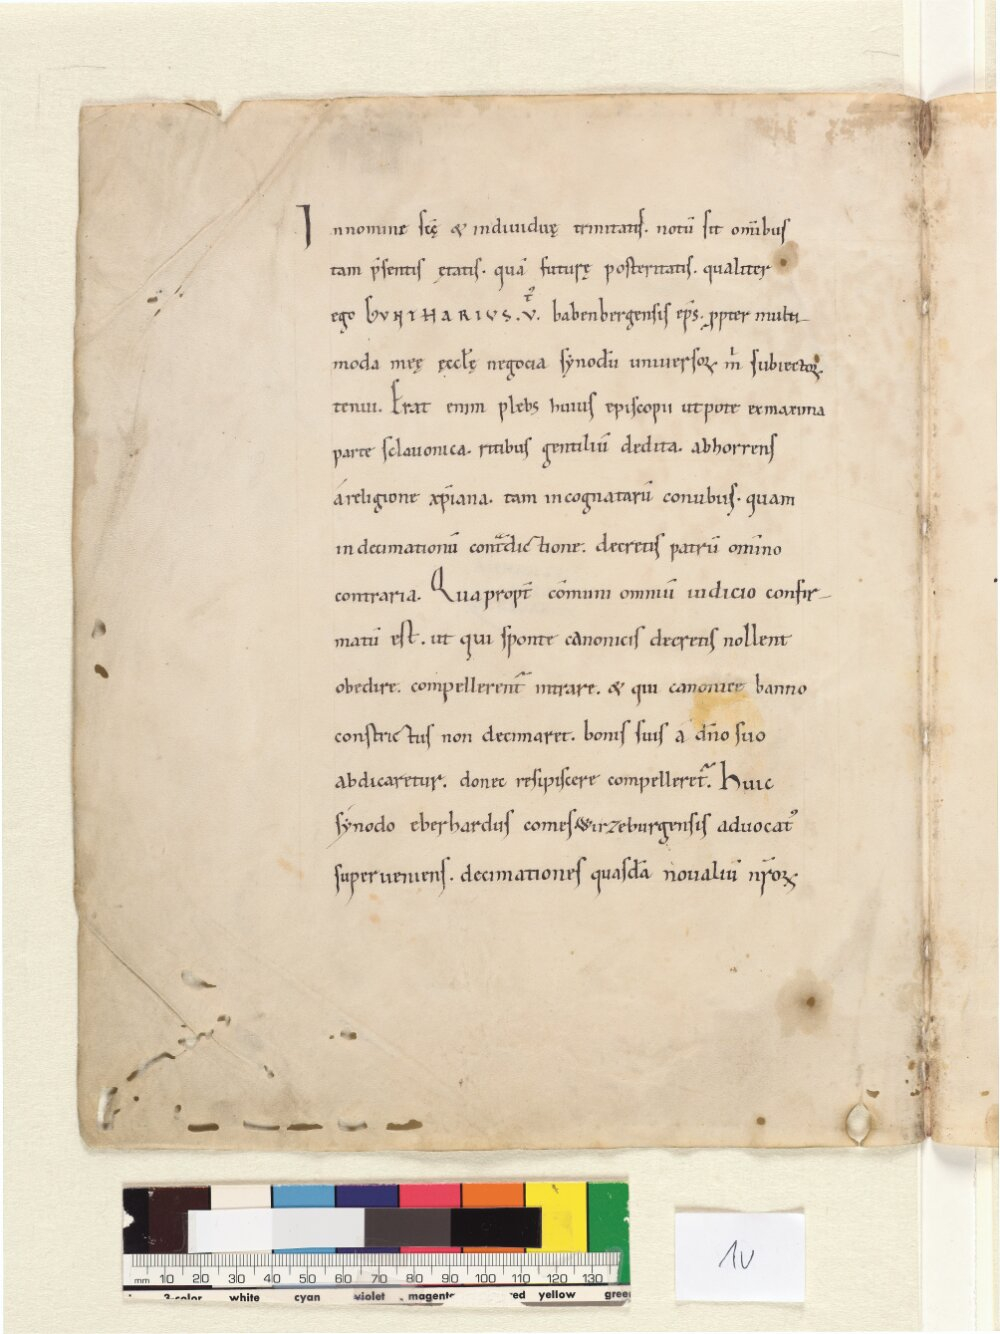 In nomine scę & individuę trinitatis. notū sit omībus
tam p̄sentis ętatis. quā futurę posteritatis. qualiter
ego GVNTHARIVS. V. babenbergensis ep̄s. ꝓpter multi-
moda meę ęccłę negocia synodū universoꝝ m̄ subiectoꝝ
tenui. Erat enim plebs huius episcopii utpote ex maxima
parte sclavonica. ritibus gentiliū dedita. abhorrens
á religione xp̄iana. tam in cognatarū conubiis. quam
in decimationū contᷓdictione. decretis patrū omīno
contraria. Quapropt̄ cōmuni omniū iudicio confir-
matū est. ut qui sponte canonicis decretis nollent
obedire. compellerent̄ intrare. & qui canonice banno
constrictus non decimaret. bonis suis á dn̄o suo
abdicaretur. donec resipiscere compelleret̄. Huic
synodo eberhardus comes wirzeburgensis advocatꝰ
superveniens. decimationes quasdā novaliū nr̄oꝝ
1v
mm 10 20 30 40 50 60 70 80 90 100 110 120 130
3-color white cyan violet magenta red yellow green